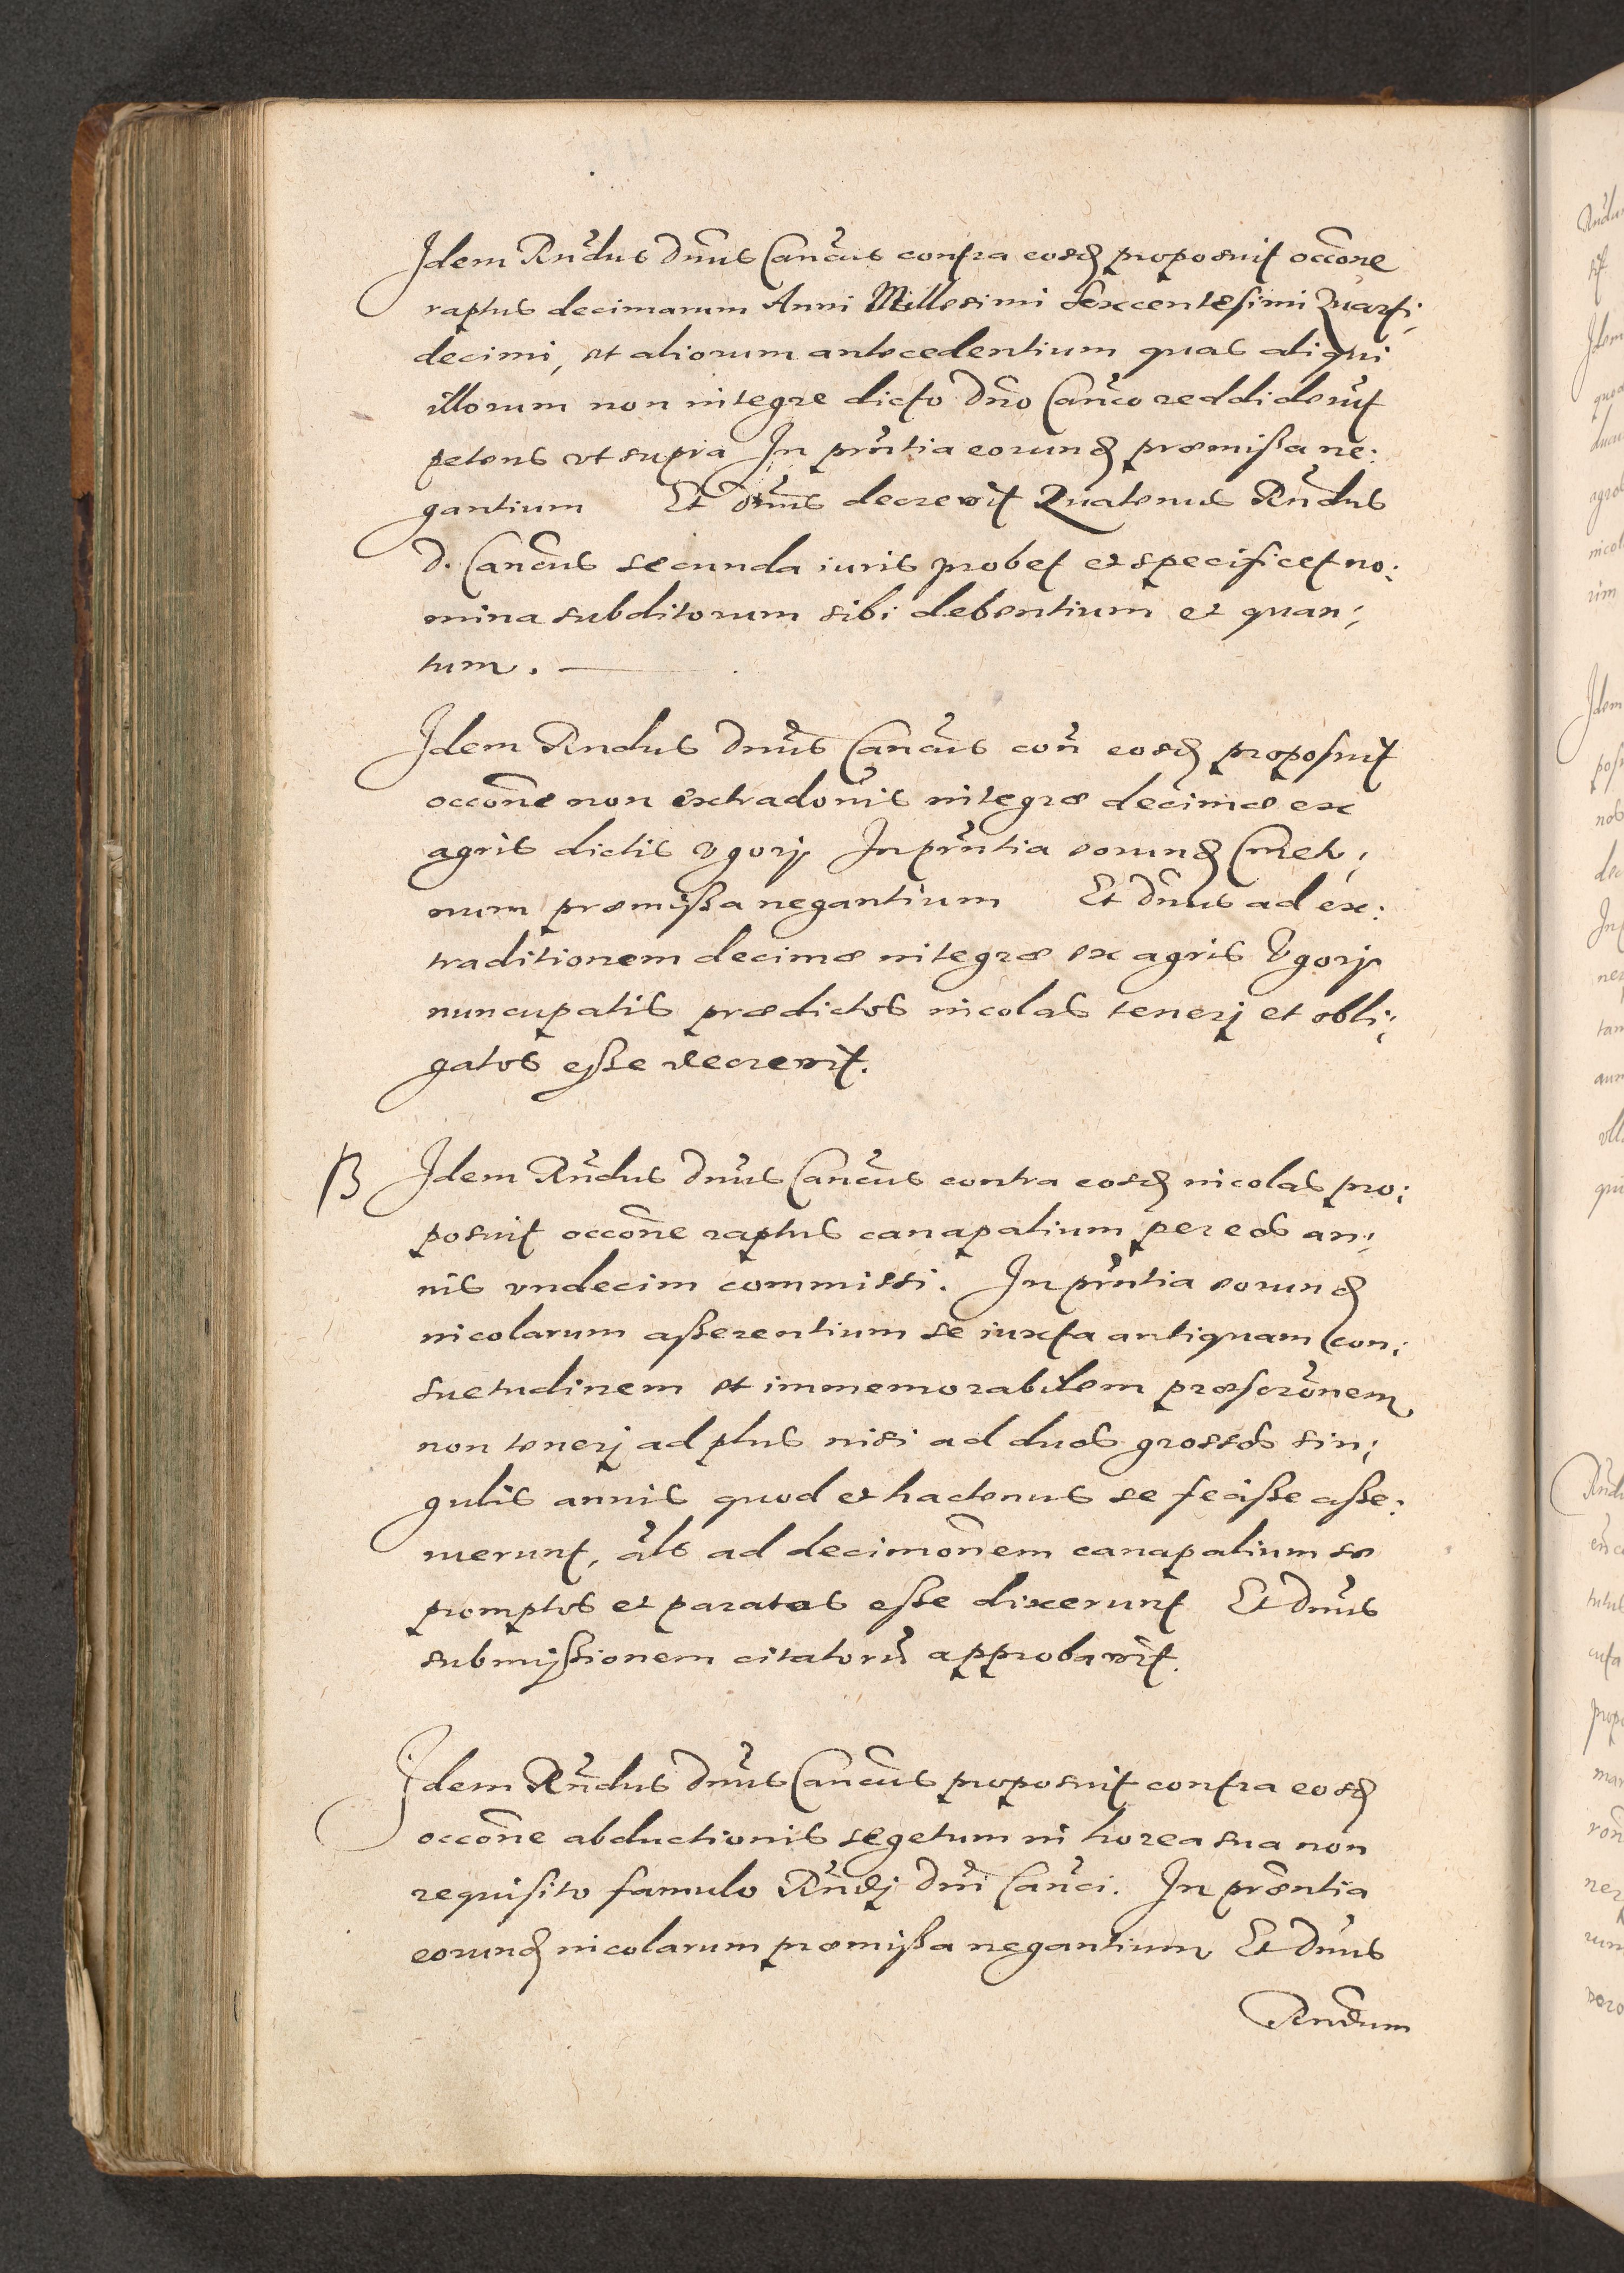 Idem Rndus Dnus Cancus contra eosd proposuit occone
raptus decimarum Anni Millesimi Sexcentesimi Quarti,
decimi, et aliorum antecedentium quas aliqui
illorum non integre dicto Dno Canco reddiderut
petens vt supra In pntia eorund præmissa ne:
gantium Et Dnus decrevit Quatenus Rndus
D. Cancus secunda iuris probet et specificet no:
mina subditorum sibi debentium et quan,
tum.
Idem Rndus Dnus Cancus con eosd proposuit
occone non extradonis integræ decimæ ex
agris dictis Vgory In pntia eorund Cmeto,
num præmissa negantium Et Dnus ad ex:
traditionem decimæ integræ ex agris Vgory
nuncupatis prædictos incolas tenerj et obli,
gatos esse decrevit.
ꞵ Idem Rndus Dnus Cancus contra eosd incolas pro:
posuit occone raptus canapalium per eos an,
nis vndecim commissi. In pntia eorund
incolarum asserentium se iuxta antiquam con,
suetudinem et immemorabilem præscronem
non tenerj ad plus nisi ad duos grossos sin,
gulis annis quod et hactenus se fecisse asse:
ruerunt, als ad decimonem canapalium se
promptos et paratos esse dixerunt Et Dnus
submissionem citatoru approbavit.
Idem Rndus Dnus Cancus proposuit contra eosd
occone abductionis segetum in horea sua non
requisito famulo Rndj Dni Canci. In præntia
eorund incolarum præmissa negantium Et Dnus
Rndum